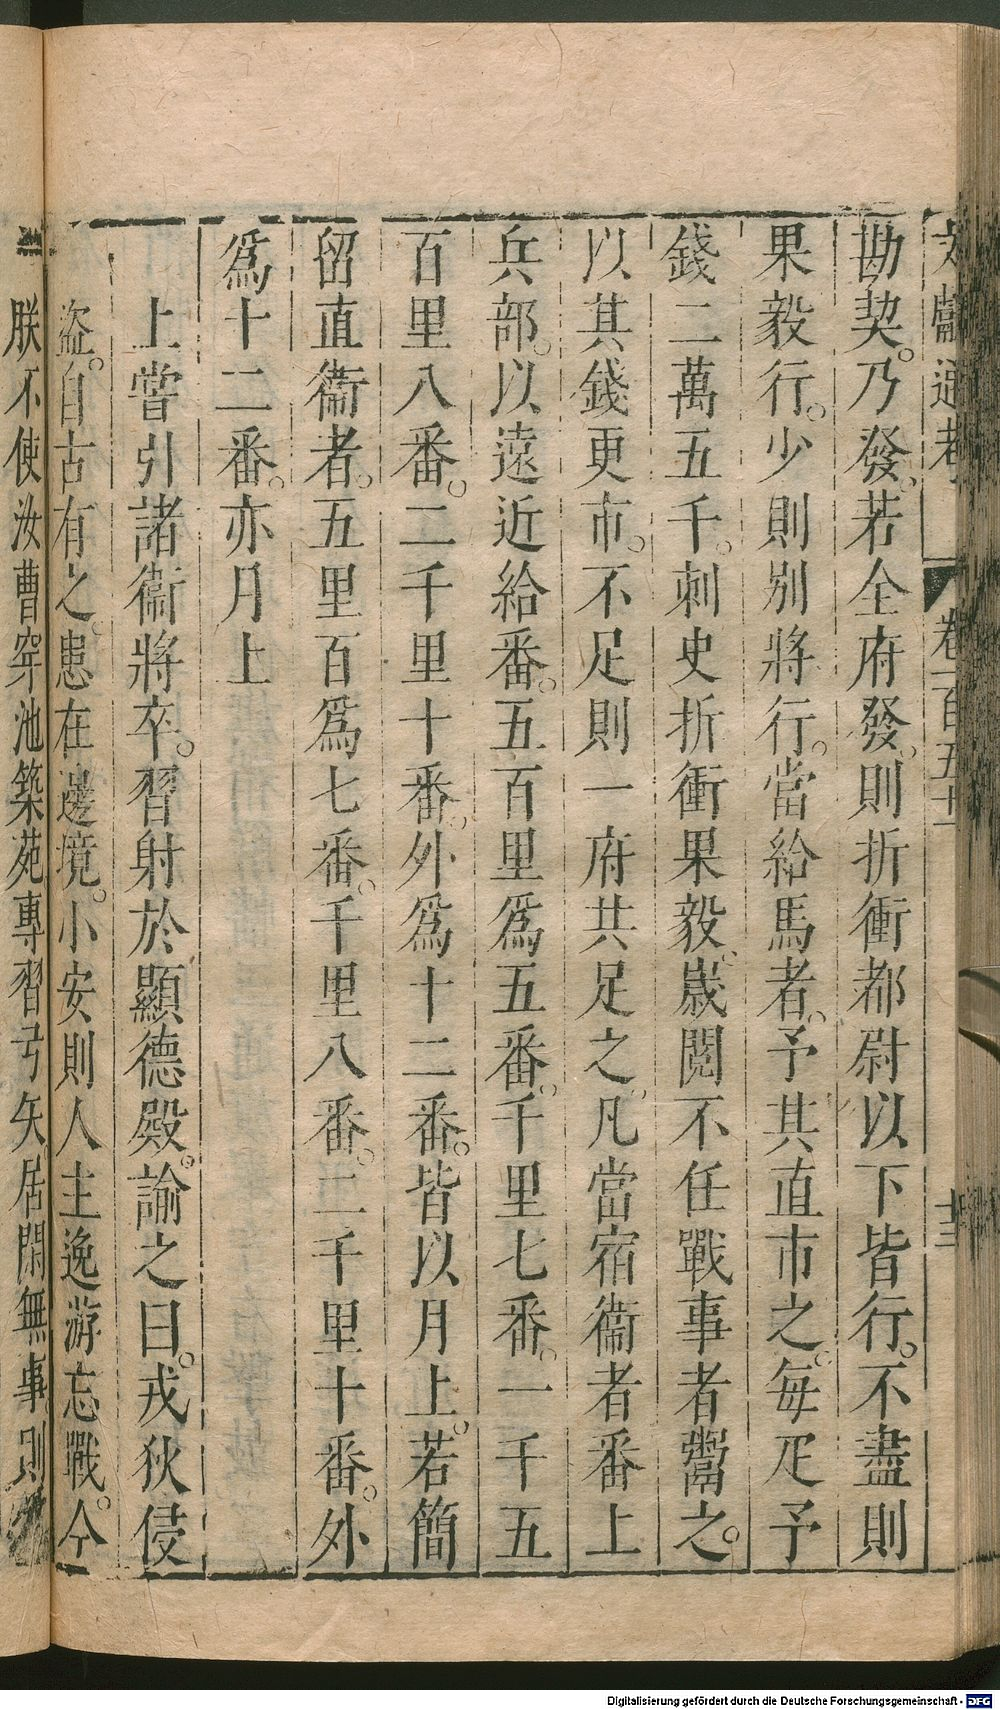 文獻通考 卷一百五十一 十三
勘契。乃發。若全府發。則折衝都尉以下皆行。不盡則
果毅行。少則別將行。當給馬者。予其直市之。每疋予
錢二萬五千。刺史折衝果毅。歲閱不任戰事者鬻之。
以其錢更市。不足則一府共足之。凡當宿衞者番上
兵部。以遠近給番。五百里爲五番。千里七番。一千五
百里八番。二千里十番。外爲十二番。皆以月上。若簡
留直衞者。五里百爲七番。千里八番。二千里十番。外
爲十二番。亦月上
上嘗引諸衞將卒。習射於顯德殿。諭之曰。戎狄侵
盜。自古有之。患在邊境。小安則人主逸游忘戰。今
朕不使汝曹穿池築苑專習弓矢居閑無事則
Digitalisierung gefördert durch die Deutsche Forschungsgemeinschaft - DFG